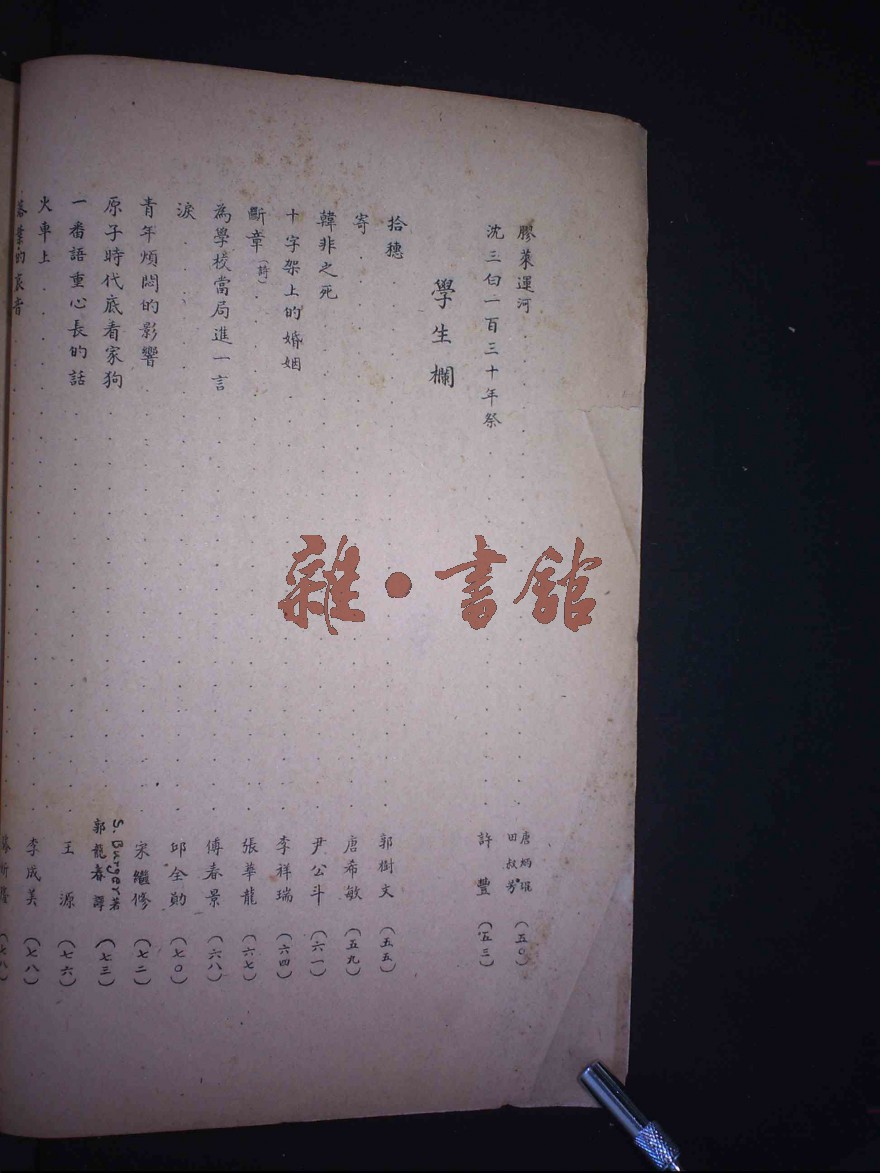 膠萊運河 唐炳琨 田叔芳 (五〇)
沈三白一百三十年祭 許豐 (五三)
學生欄
拾穗 郭樹文 (五五)
寄 唐希敏 (五九)
韓非之死 尹公斗 (六一)
十字架上的婚姻 李祥瑞 (六四)
斷章(詩) 張華龍 (六七)
為學校當局進一言 傅春景 (六八)
淚 邱全勛 (七〇)
青年煩悶的影響 宋繼修 (七二)
原子時代底看家狗 S. Burger著 郭龍春譯 (七三)
一番語重心長的話 王源 (七六)
火車上 李成美 (七八)
落葉的哀音
雜·書館